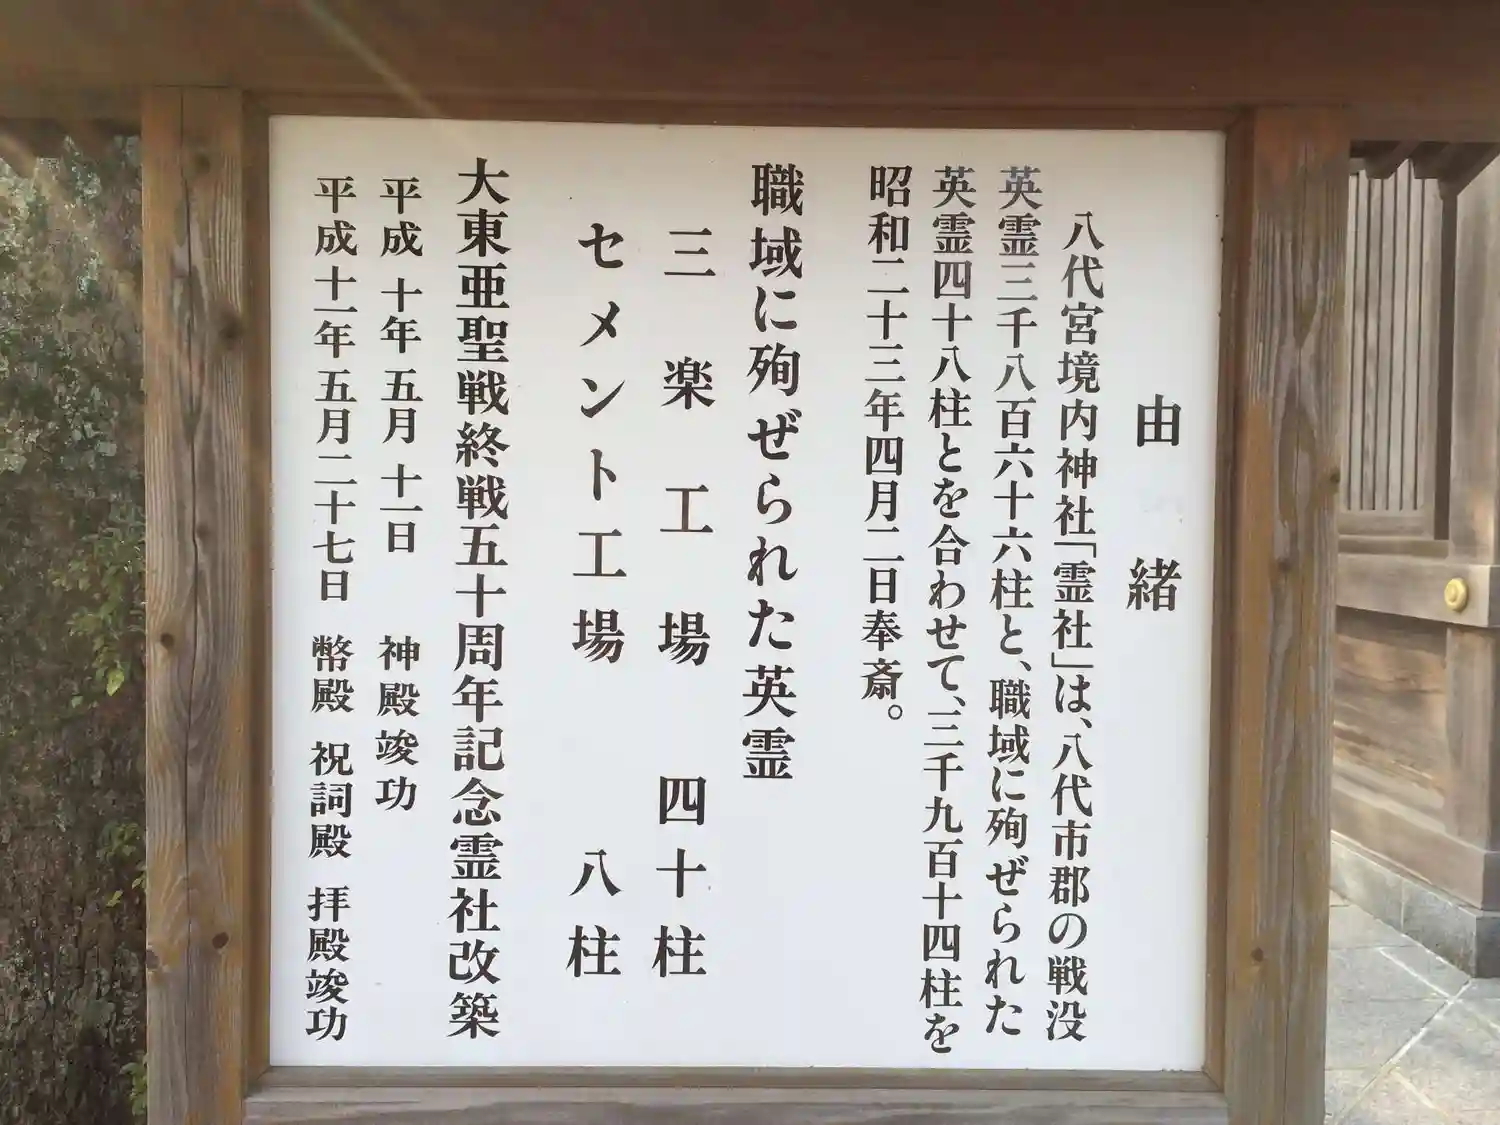 由緒
八代宮境内神社「霊社」は、八代市郡の戦没
英霊三千八百六十六柱と、職域に殉ぜられた
英霊四十八柱とを合わせて、三千九百十四柱を
昭和二十三年四月二日奉斎。
職域に殉ぜられた英霊
三楽工場 四十柱
セメント工場 八柱
大東亜聖戦終戦五十周年記念霊社改築
平成十年五月十一日 神殿竣功
平成十一年五月二十七日 幣殿 祝詞殿 拝殿竣功